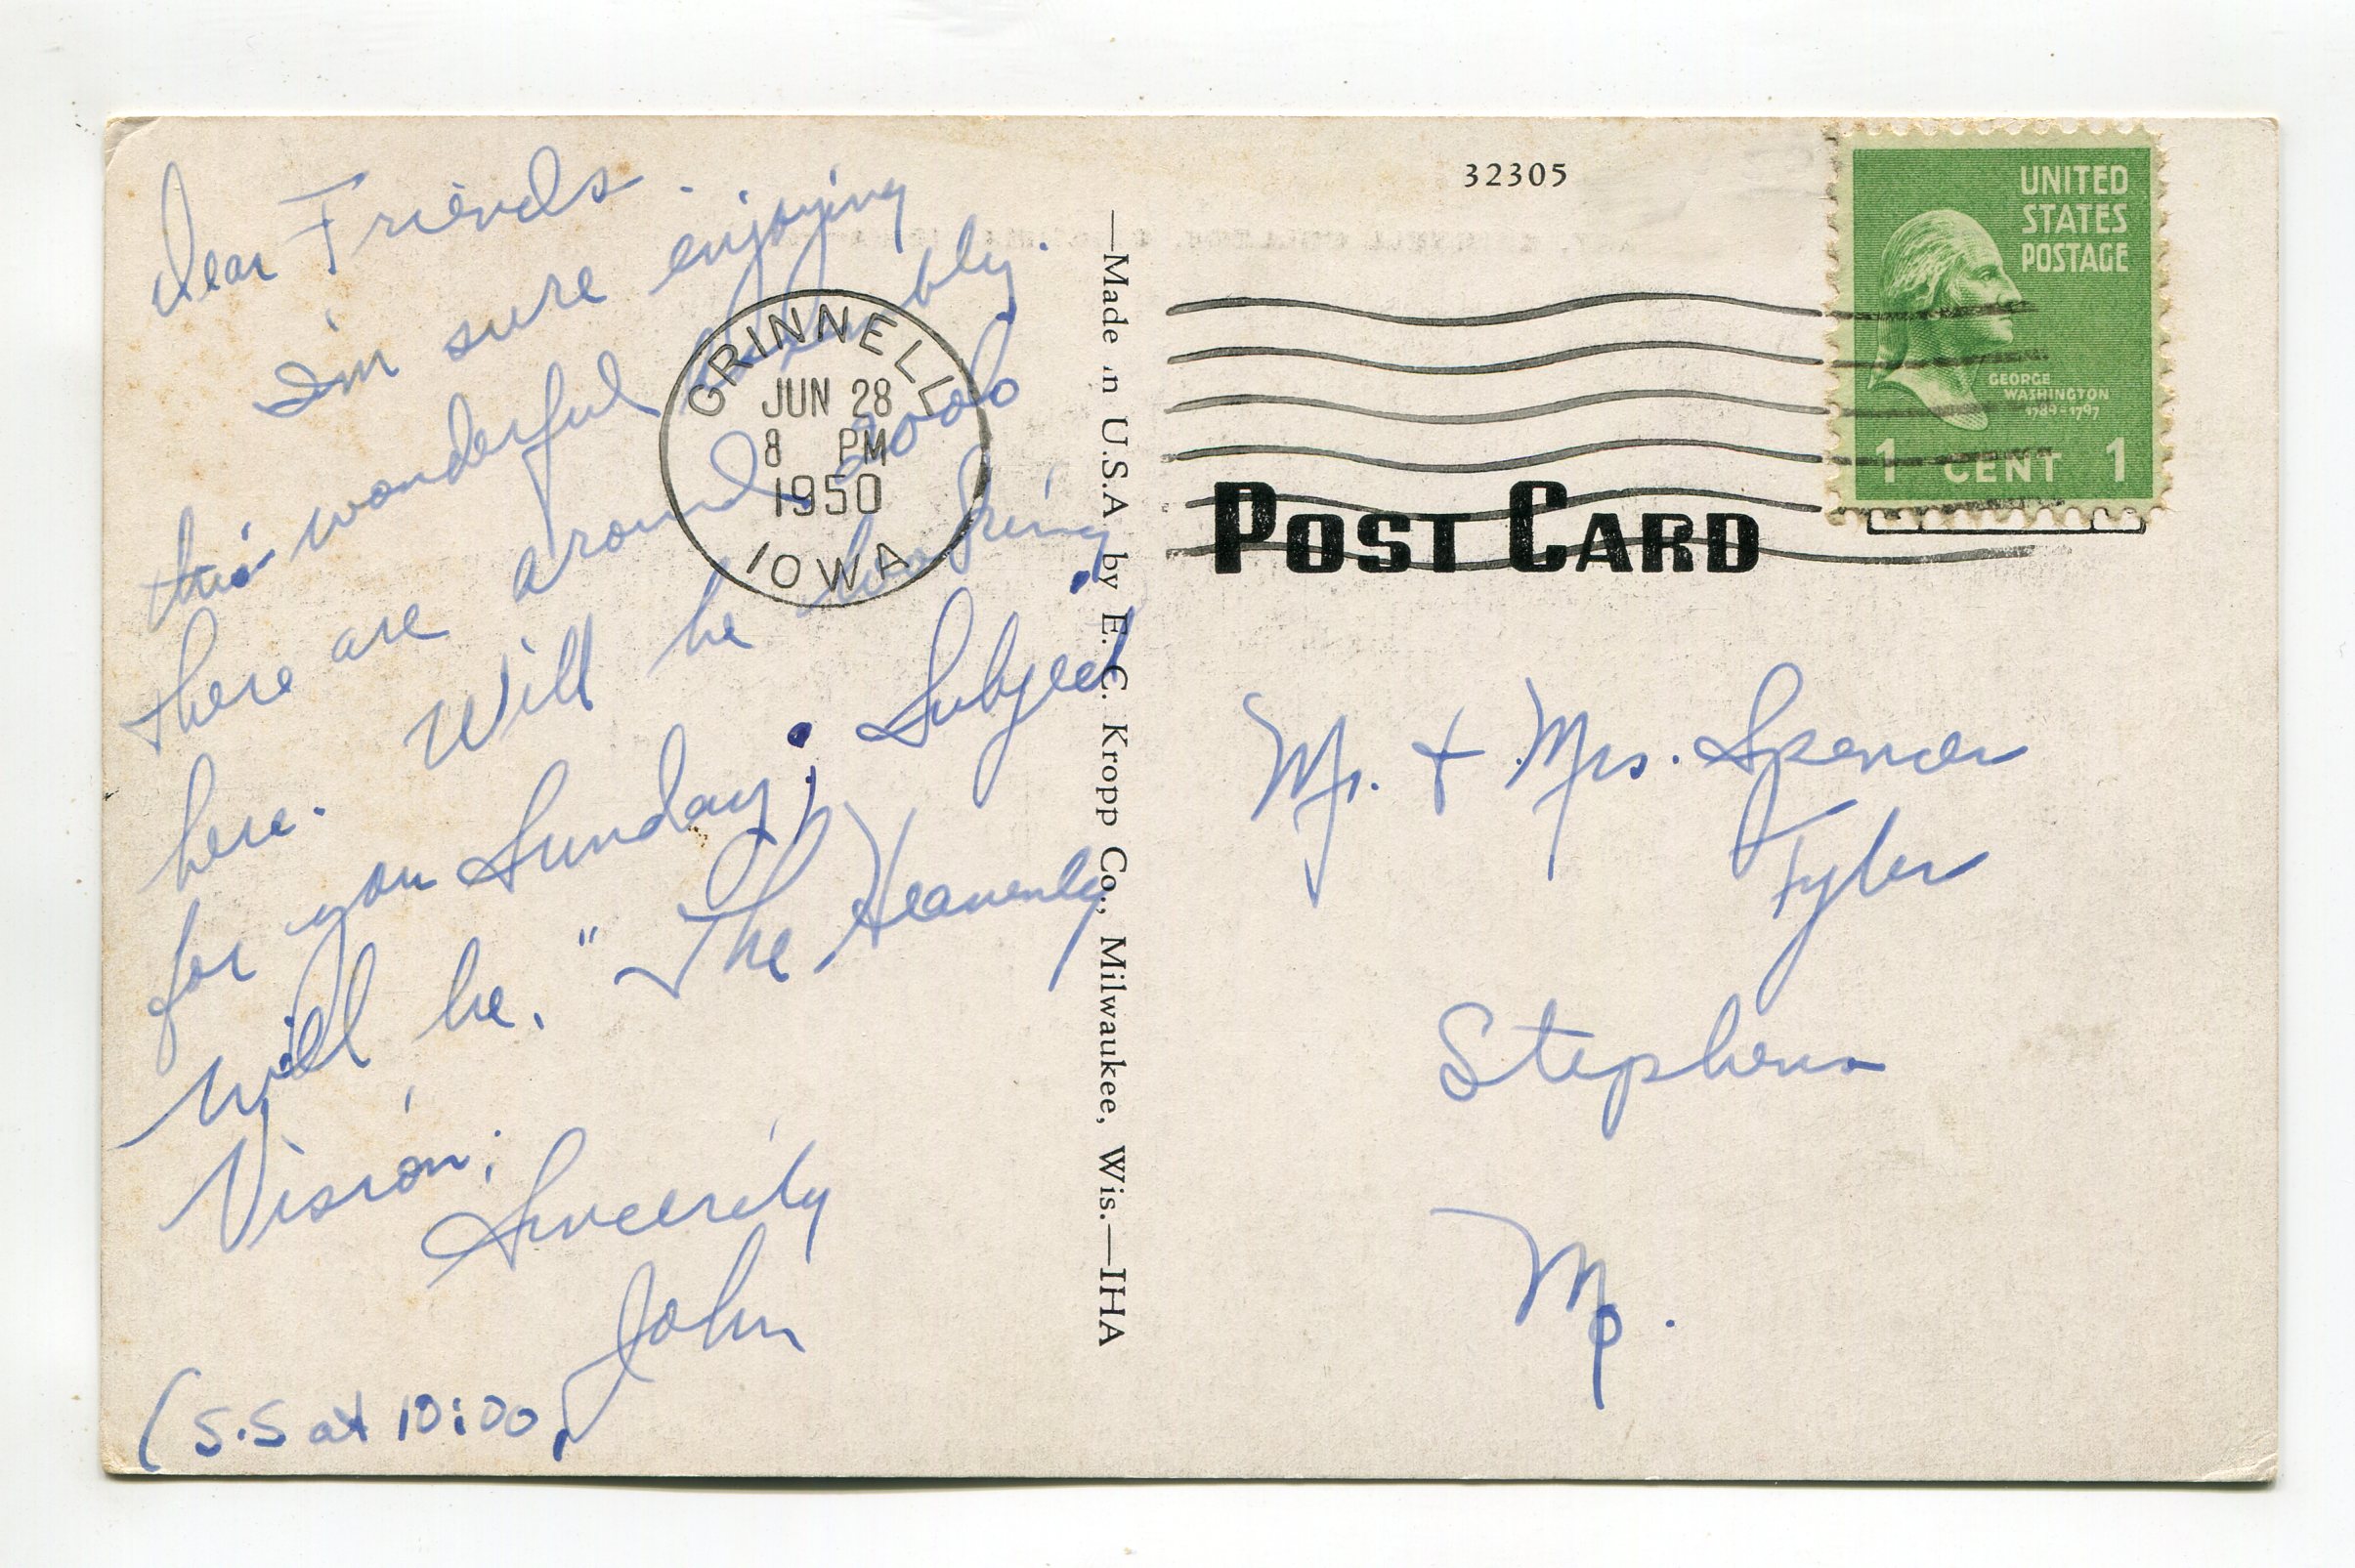 Dear Friends.
I'm sure enjoying
this wonderful assembly.
there are around 2000
here. Will be looking
for you Sunday; Subject
will be. "The Heavenly
Vision;
Sincerely
John
(S.S at 10:00,
GRINNELL
JUN 28
8 PM
1950
IOWA
—Made in U.S.A by E. C. Kropp Co., Milwaukee, Wis.—IHA
32305
UNITED
STATES
POSTAGE
GEORGE
WASHINGTON
1789-1797
1 CENT 1
POST CARD
Mr. + Mrs. Spencer
Tyler
Stephens
Mo.